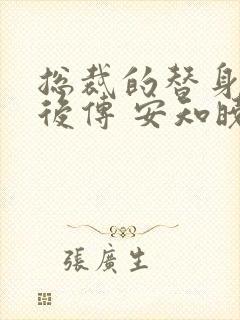 总裁的替身
後傳 安知曉
張廣生